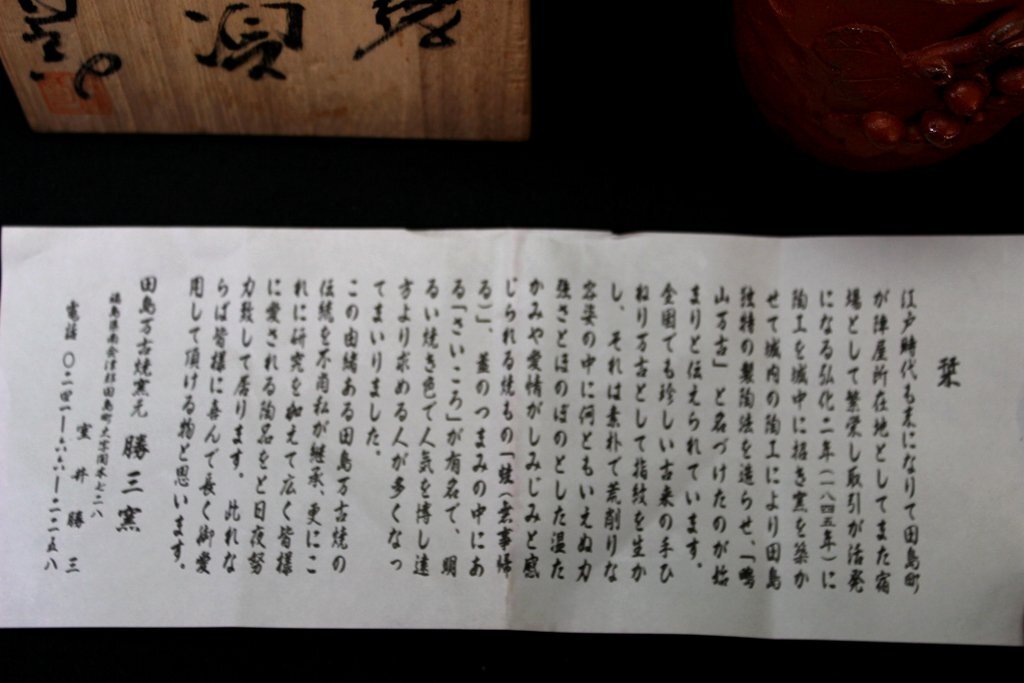 栞
江戸時代も末になりて田島町
が陣屋所在地としてまた宿
場として繁栄し取引が活発
になる弘化二年（一八四五年）に
陶工を城中に招き窯を築か
せて城内の陶工により田島
独特の製陶法を造らせ、「鴫
山万古」と名づけたのが始
まりと伝えられています。
全国でも珍しい古来の手ひ
ねり万古として指紋を生か
し、それは素朴で荒削りな
容姿の中に何ともいえぬ力
強さとほのぼのとした温た
かみや愛情がしみじみと感
じられる焼もの「蛙（無事帰
る）」、蓋のつまみの中にあ
る「さいころ」が有名で、明
るい焼き色で人気を博し遠
方より求める人が多くなっ
てまいりました。
この由緒ある田島万古焼の
伝統を不肖私が継承、更にこ
れに研究を加えて広く皆様
に愛される陶器をと日夜努
力致して居ります。此れな
らば皆様に喜んで長く御愛
用して頂ける物と思います。
田島万古焼窯元 勝三窯
福島県南会津郡田島町大字関本七二八
室井勝三
電話 〇二四一―六六―二二五八